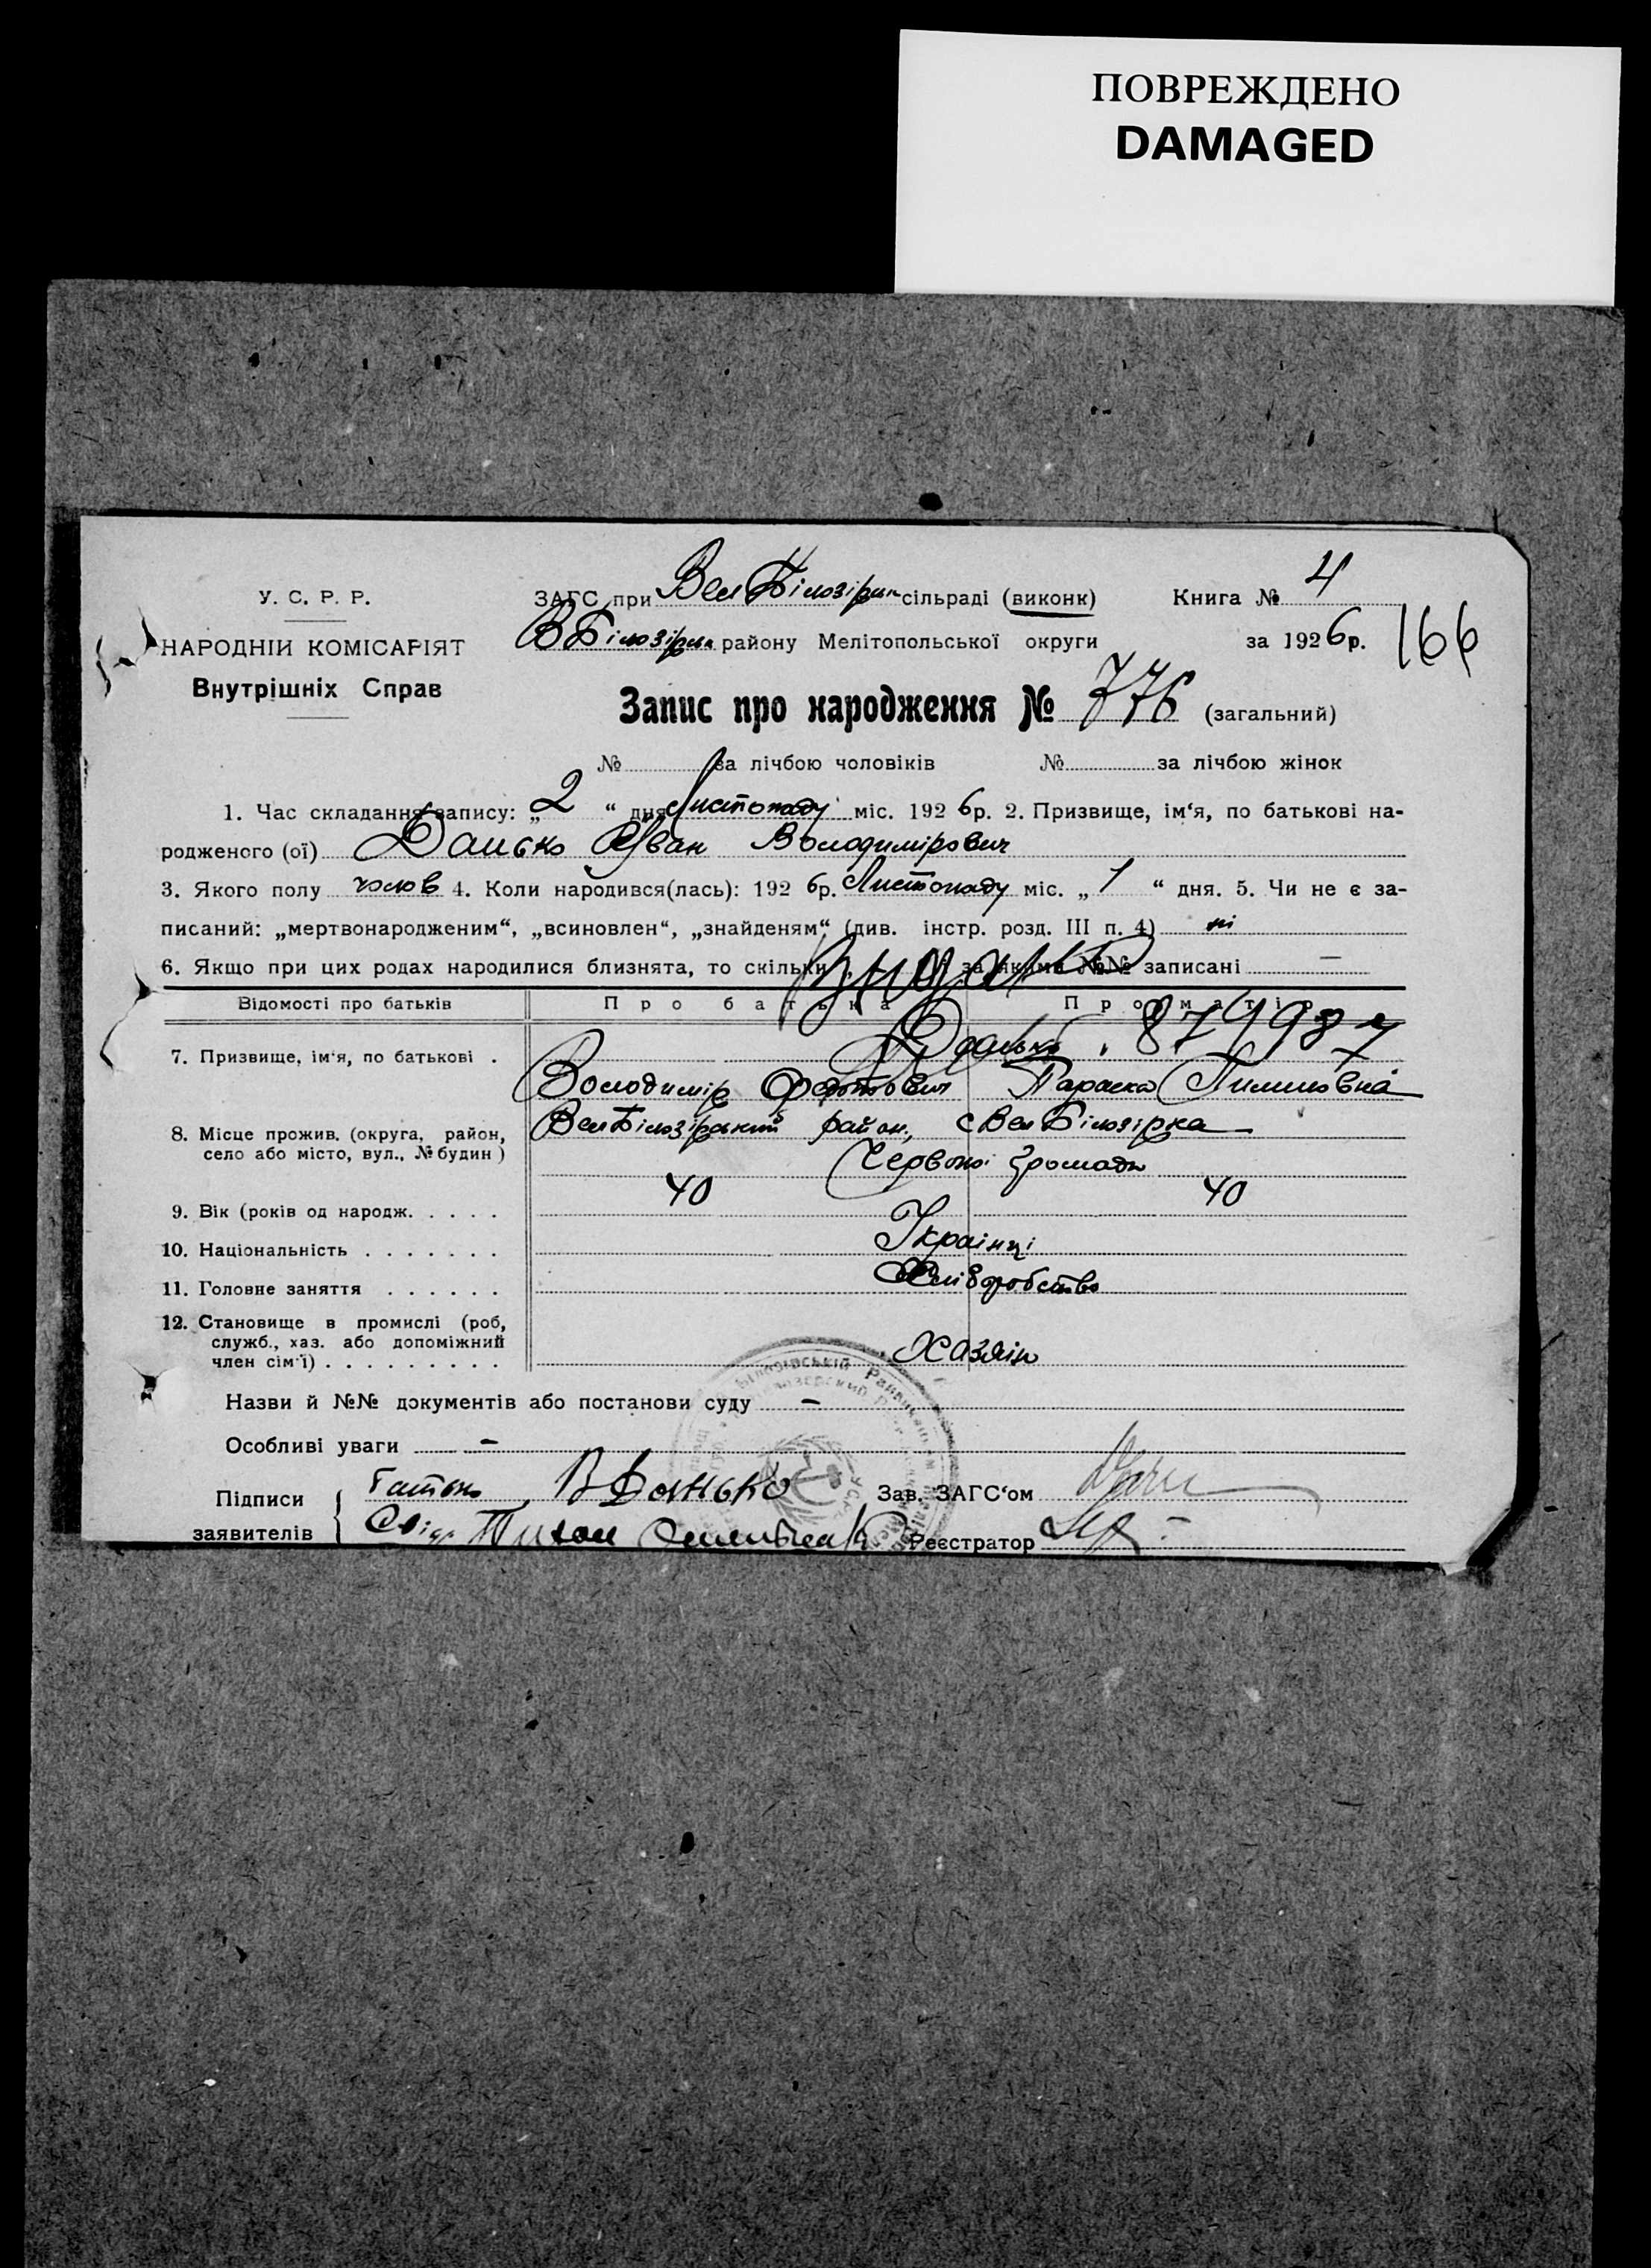 ПОВРЕЖДЕНО
DAMAGED
У. С. Р. Р.
НАРОДНІЙ КОМІСАРІЯТ
Внутрішніх Справ
ЗАГС при Вел Білозірк сільраді (виконк) Книга № 4
В Білозірк району Мелітопольської округи за 1926р. 166
Запис про народження № 776 (загальний)
№ за лічбою чоловіків № за лічбою жінок
1. Час складання запису: „2“ дня Листопаду міс. 1926р. 2. Призвище, ім‘я, по батькові на-
родженого (ої) Данько Іван Володимірович
3. Якого полу чолов 4. Коли народився(лась): 1926р. Листопаду міс. „1“ дня. 5. Чи не є за-
писаний: „мертвонародженим“, „всиновлен“, „знайденям“ (див. інстр. розд. III п. 4) ні
6. Якщо при цих родах народилися близнята, то скільки за якими №№ записані —
Відомості про батьків Про батька Про матір
7. Призвище, ім‘я, по батькові . Данько
Володимір Федотович Параска Пилиповна
8. Місце прожив. (округа, район, село або місто, вул., № будин) Вел Білозірський район, с Вел Білозірка
Червоної Громади
9. Вік (років од народж. . . . . 40 40
10. Національність . . . . . . . Українці
11. Головне заняття . . . . . . Хліборобство
12. Становище в промислі (роб, служб., хаз. або допоміжний член сім‘ї) . . . . . . . . . Хазяїн
Назви й №№ документів або постанови суду —
Особливі уваги —
Підписи заявителів Батько В Данько Зав. ЗАГС‘ом
Свід. Тихон Реєстратор